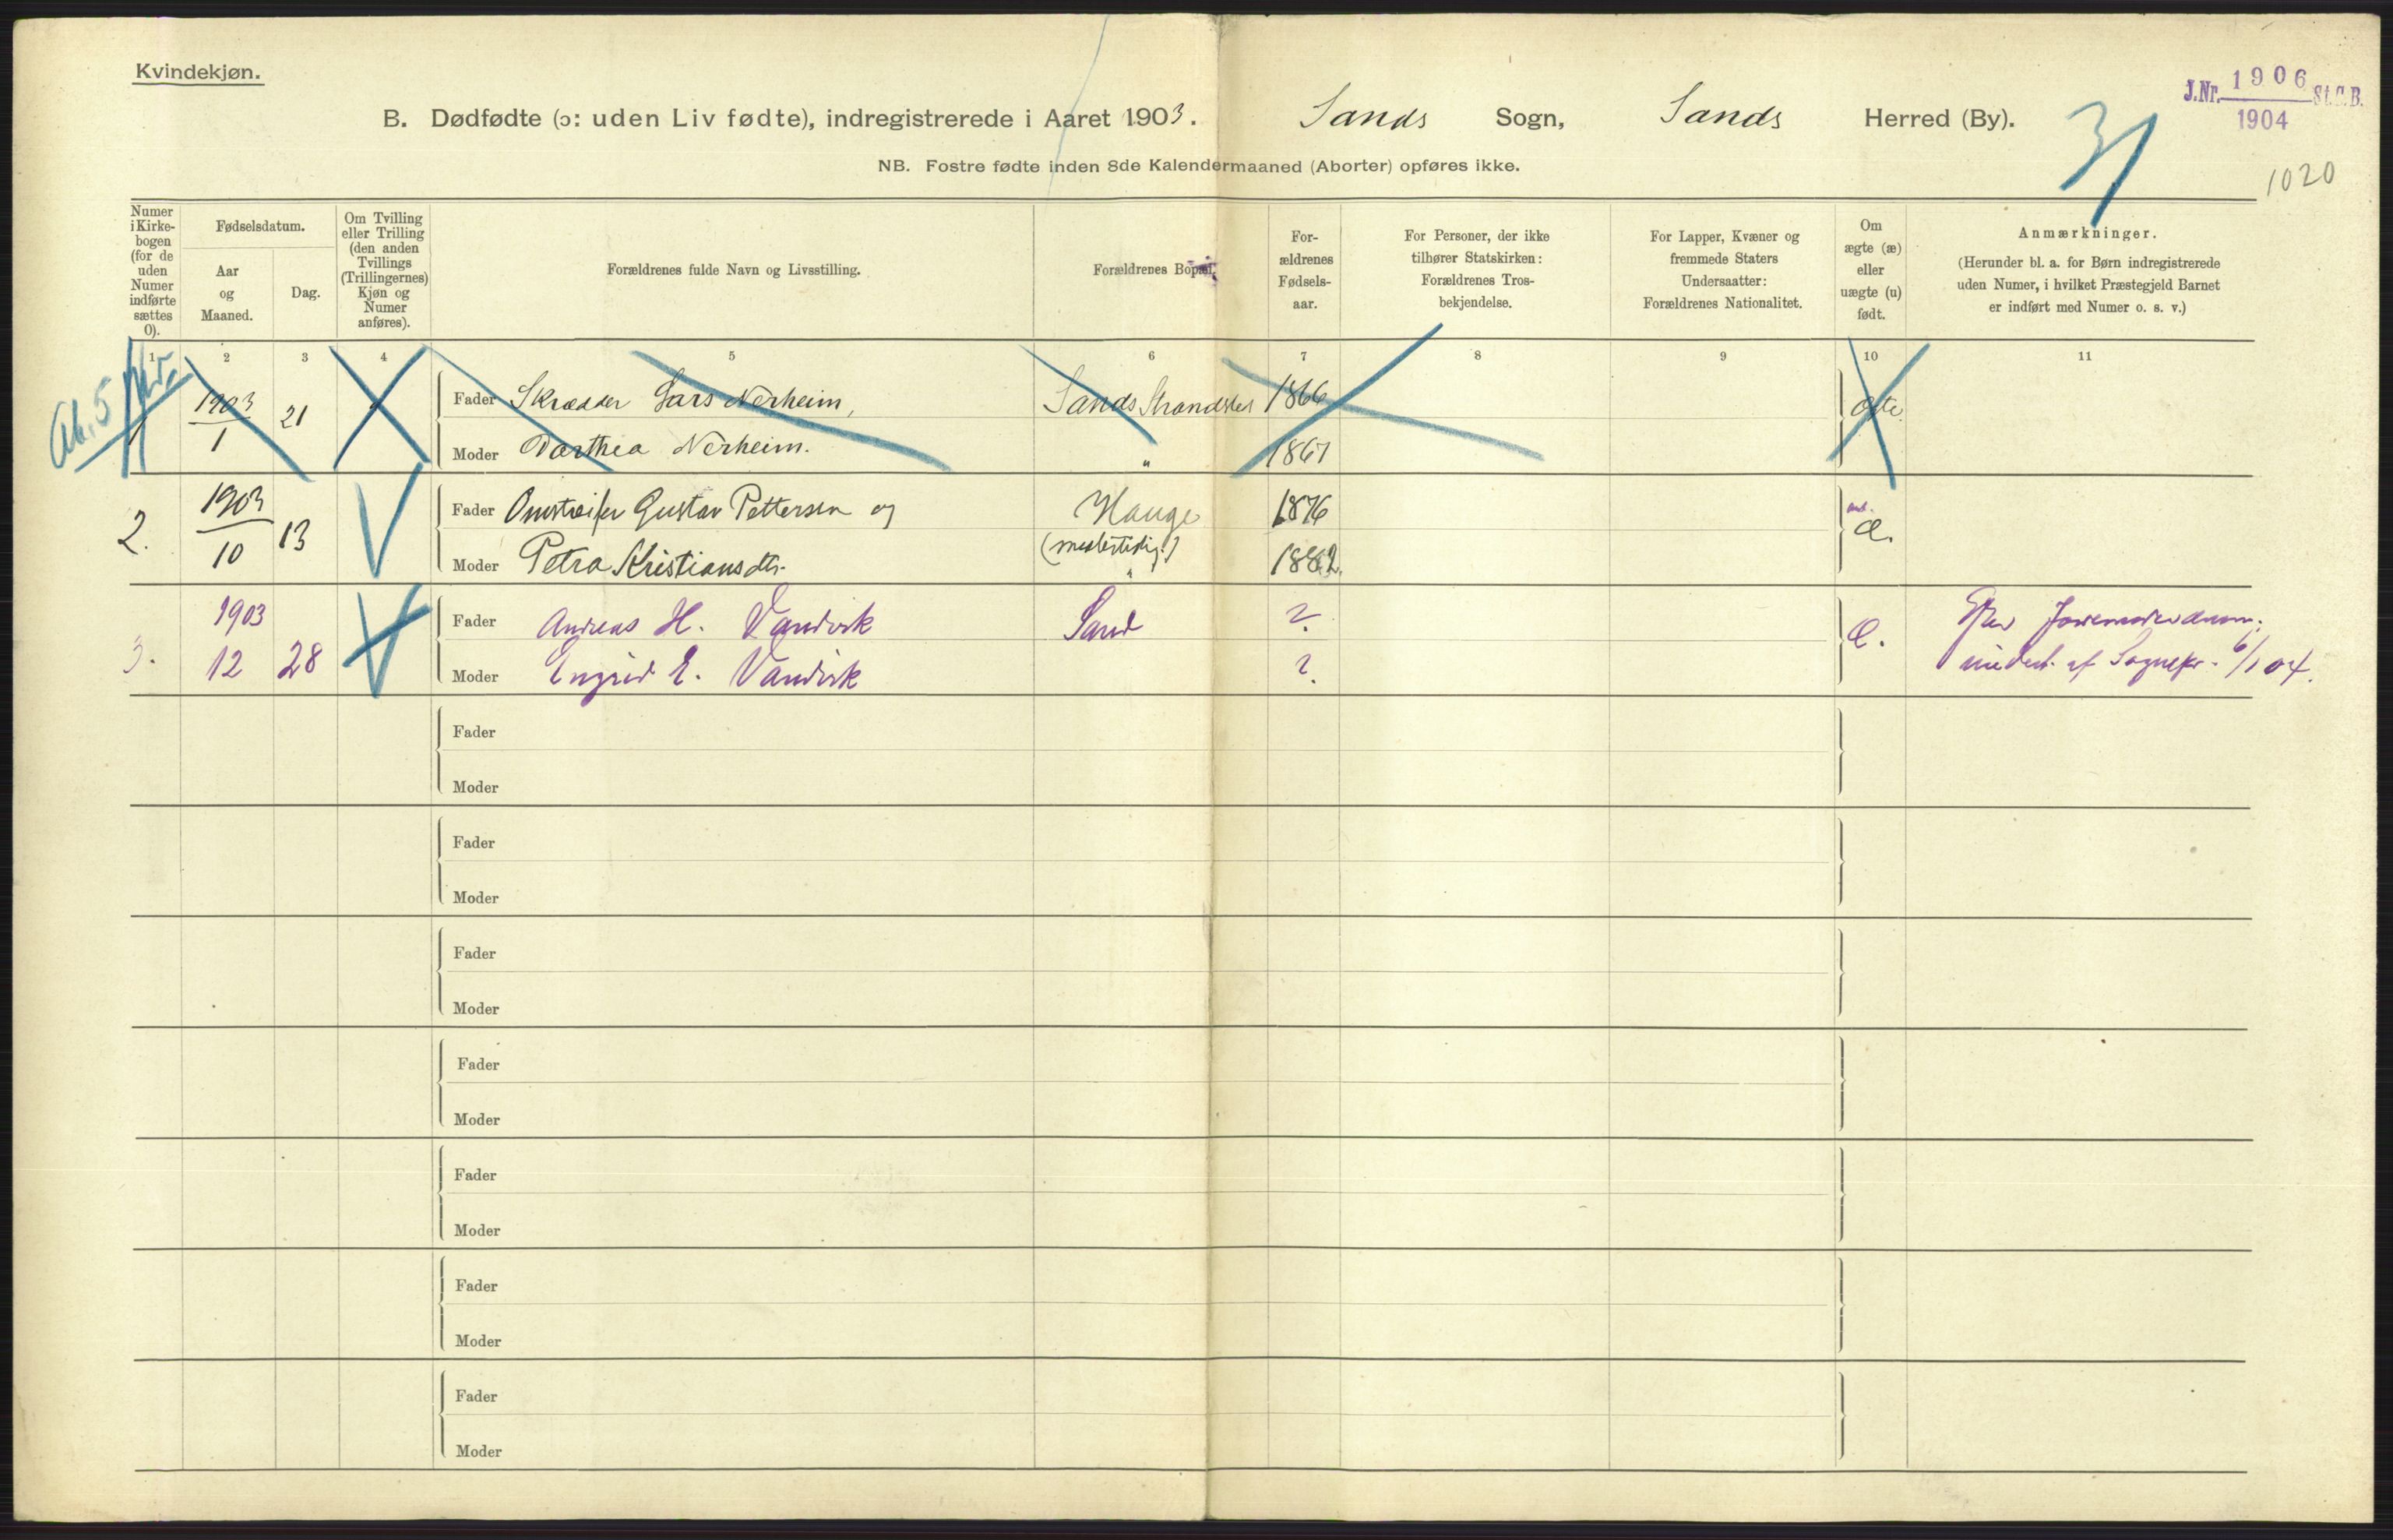 Kvindekjøn.
B. Dødfødte (ɔ: uden Liv fødte), indregistrerede i Aaret 1903. Sands Sogn, Sands Herred (By).
J.Nr. 1906 St.C.B.
1904
31
1020
NB. Fostre fødte inden 8de Kalendermaaned (Aborter) opføres ikke.
Numer i Kirke-bogen (for de uden Numer indførte sættes 0).
Fødselsdatum.
Aar og Maaned.
Dag.
Om Tvilling eller Trilling (den anden Tvillings (Trillingernes) Kjøn og Numer anføres).
Forældrenes fulde Navn og Livsstilling.
Forældrenes Bopæl.
For-ældrenes Fødsels-aar.
For Personer, der ikke tilhører Statskirken: Forældrenes Tros-bekjendelse.
For Lapper, Kvæner og fremmede Staters Undersaatter: Forældrenes Nationalitet.
Om ægte (æ) eller uægte (u) født.
Anmærkninger.
(Herunder bl. a. for Børn indregistrerede uden Numer, i hvilket Præstegjeld Barnet er indført med Numer o. s. v.)
1 2 3 4 5 6 7 8 9 10 11
Ab. 5
1903 21 Fader Skrædder Lars Nerheim, Sands Strandsted 1866 ægte
1 Moder Dorthea Nerheim. " 1867
2. 1903 13 Fader Omstreifer Gustav Pettersen og Hauge 1876 Æ.
10 Moder Petra Kristiansdtr. (midlertidig) " 1882
3. 1903 Fader Andreas H. Vandvik Sand ? Æ. Efter Jordemoderanm.
12 28 Moder Engrid E. Vandvik ? af Sognepr. 6/1 04.
Fader
Moder
Fader
Moder
Fader
Moder
Fader
Moder
Fader
Moder
Fader
Moder
Fader
Moder